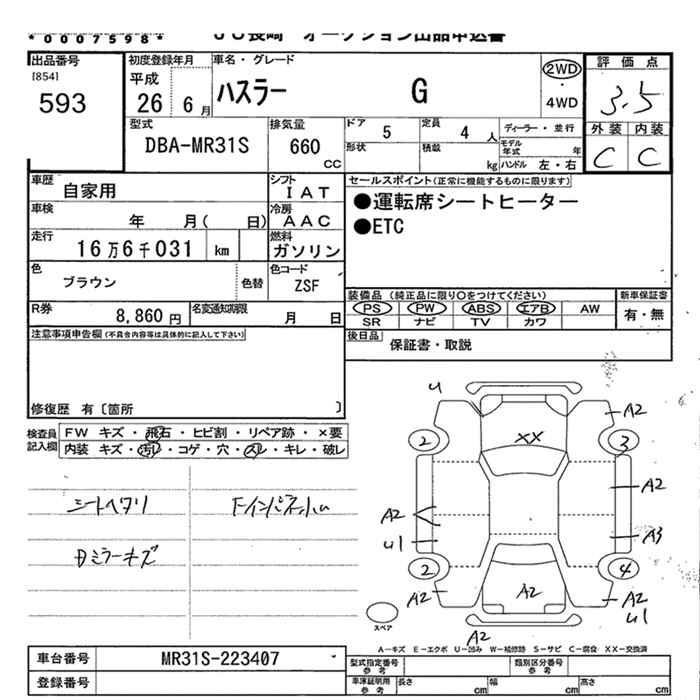 *0007598*
JU長崎 オークション出品申込書
出品番号
[854]
593
初度登録年月
平成
26 6月
車名・グレード
ハスラー G
2WD
・
4WD
評価点
3.5
外装 内装
C C
型式
DBA-MR31S
排気量
660
CC
ドア 5
定員 4人
ディーラー・並行
形状
積載 kg
モデル年式 年
ハンドル 左・右
車歴 自家用
シフト IAT
車検 年 月( 日)
冷房 AAC
走行 16万6千031 km
燃料 ガソリン
色 ブラウン 色替
色コード ZSF
R券 8,860円
名変通知期限 月 日
セールスポイント(正常に機能するものに限ります)
●運転席シートヒーター
●ETC
装備品(純正品に限り○をつけてください)
PS PW ABS エアB AW
SR ナビ TV カワ
新車保証書
有・無
後日品 保証書・取説
注意事項申告欄(不具合内容等は具体的に記入して下さい)
修復歴 有〔箇所 〕
検査員記入欄
FW キズ・飛石・ヒビ割・リペア跡・×要
内装 キズ・汚れ・コゲ・穴・スレ・キレ・破レ
シートヘタリ
Dミラーキズ
U
A2
2
XX
3
A2
A2
U1
A3
2
4
A2
A2
A2
U1
A2
スペア
A-キズ E-エクボ U-凹み W-補修跡 S-サビ C-腐食 XX-交換済
車台番号 MR31S-223407
登録番号
型式指定番号 参考
類別区分番号 参考
車庫証明用 参考
長さ cm 幅 cm 高さ cm